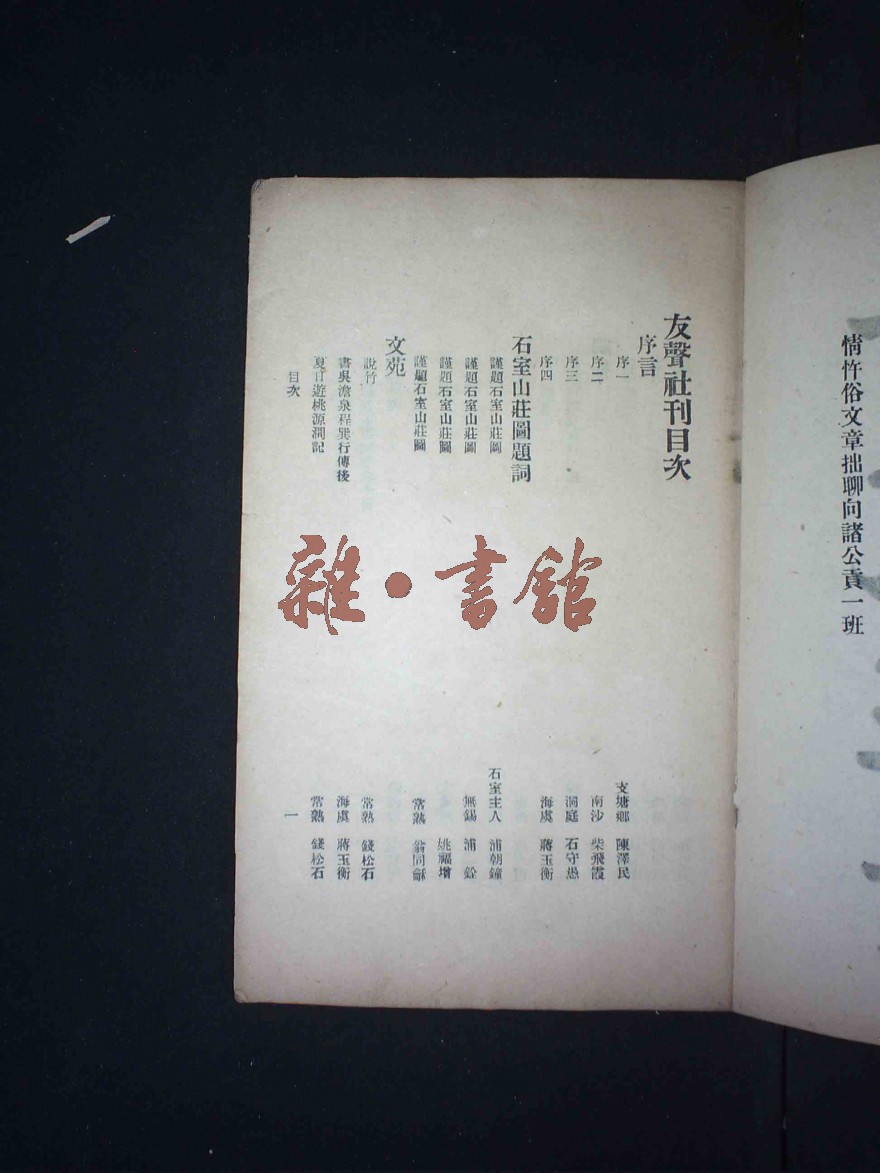 情忤俗文章拙聊向諸公貢一班
友聲社刊目次
序言
序一 支塘鄉 陳澤民
序二 南沙 柴飛霞
序三 洞庭 石守愚
序四 海虞 蔣玉衡
石室山莊圖題詞
謹題石室山莊圖 石室主人 浦朝鐘
謹題石室山莊圖 無錫 浦銓
謹題石室山莊圖 姚福增
謹題石室山莊圖 常熟 翁同龢
文苑
說竹 常熟 錢松石
書吳澹泉程巽行傳後 海虞 蔣玉衡
夏日遊桃源澗記 常熟 錢松石
目次 一
雜·書館